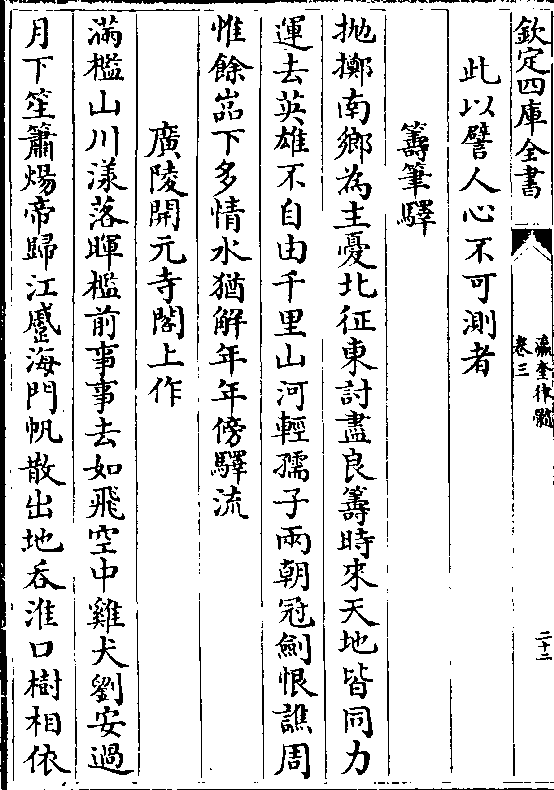 欽定四庫全書
瀛奎律髓
卷三
二十二
此以譬人心不可測者
籌筆驛
拋擲南鄉為主憂北征東討盡良籌時來天地皆同力
運去英雄不自由千里山河輕孺子兩朝冠劍恨譙周
惟餘岩下多情水猶解年年傍驛流
廣陵開元寺閣上作
滿檻山川漾落暉檻前事事去如飛空中雞犬劉安過
月下笙簫煬帝歸江蹙海門帆散出地吞淮口樹相依